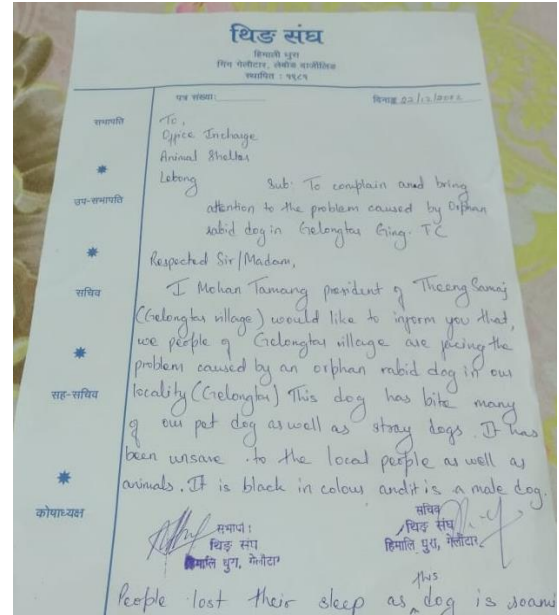 थिङ संघ
हिमाली धुरा
गिंग गेलीटार, लेबोङ दार्जीलिङ
स्थापित : १९८९
पत्र संख्या:
दिनाङ्क 22/12/2022
सभापति
उप-सभापति
सचिव
सह-सचिव
कोषाध्यक्ष
To,
Office Incharge
Animal Shelter
Lebong
Sub: To complain and bring
attention to the problem caused by Orphan
rabid dog in Gelongtar Ging. TC
Respected Sir/Madam,
I Mohan Tamang president of Theeng Samaj
(Gelongtar village) would like to inform you that,
we people of Gelongtar village are facing the
problem caused by an orphan rabid dog in our
locality (Gelongtar) This dog has bite many
of our pet dog as well as stray dogs. It has
been unsave to the local people as well as
animals. It is black in colour and it is a male dog.
सभापति
थिङ संघ
हिमालि धुरा, गेलीटार
सचिव
थिङ संघ
हिमालि धुरा, गेलीटार
People lost their sleep as this dog is